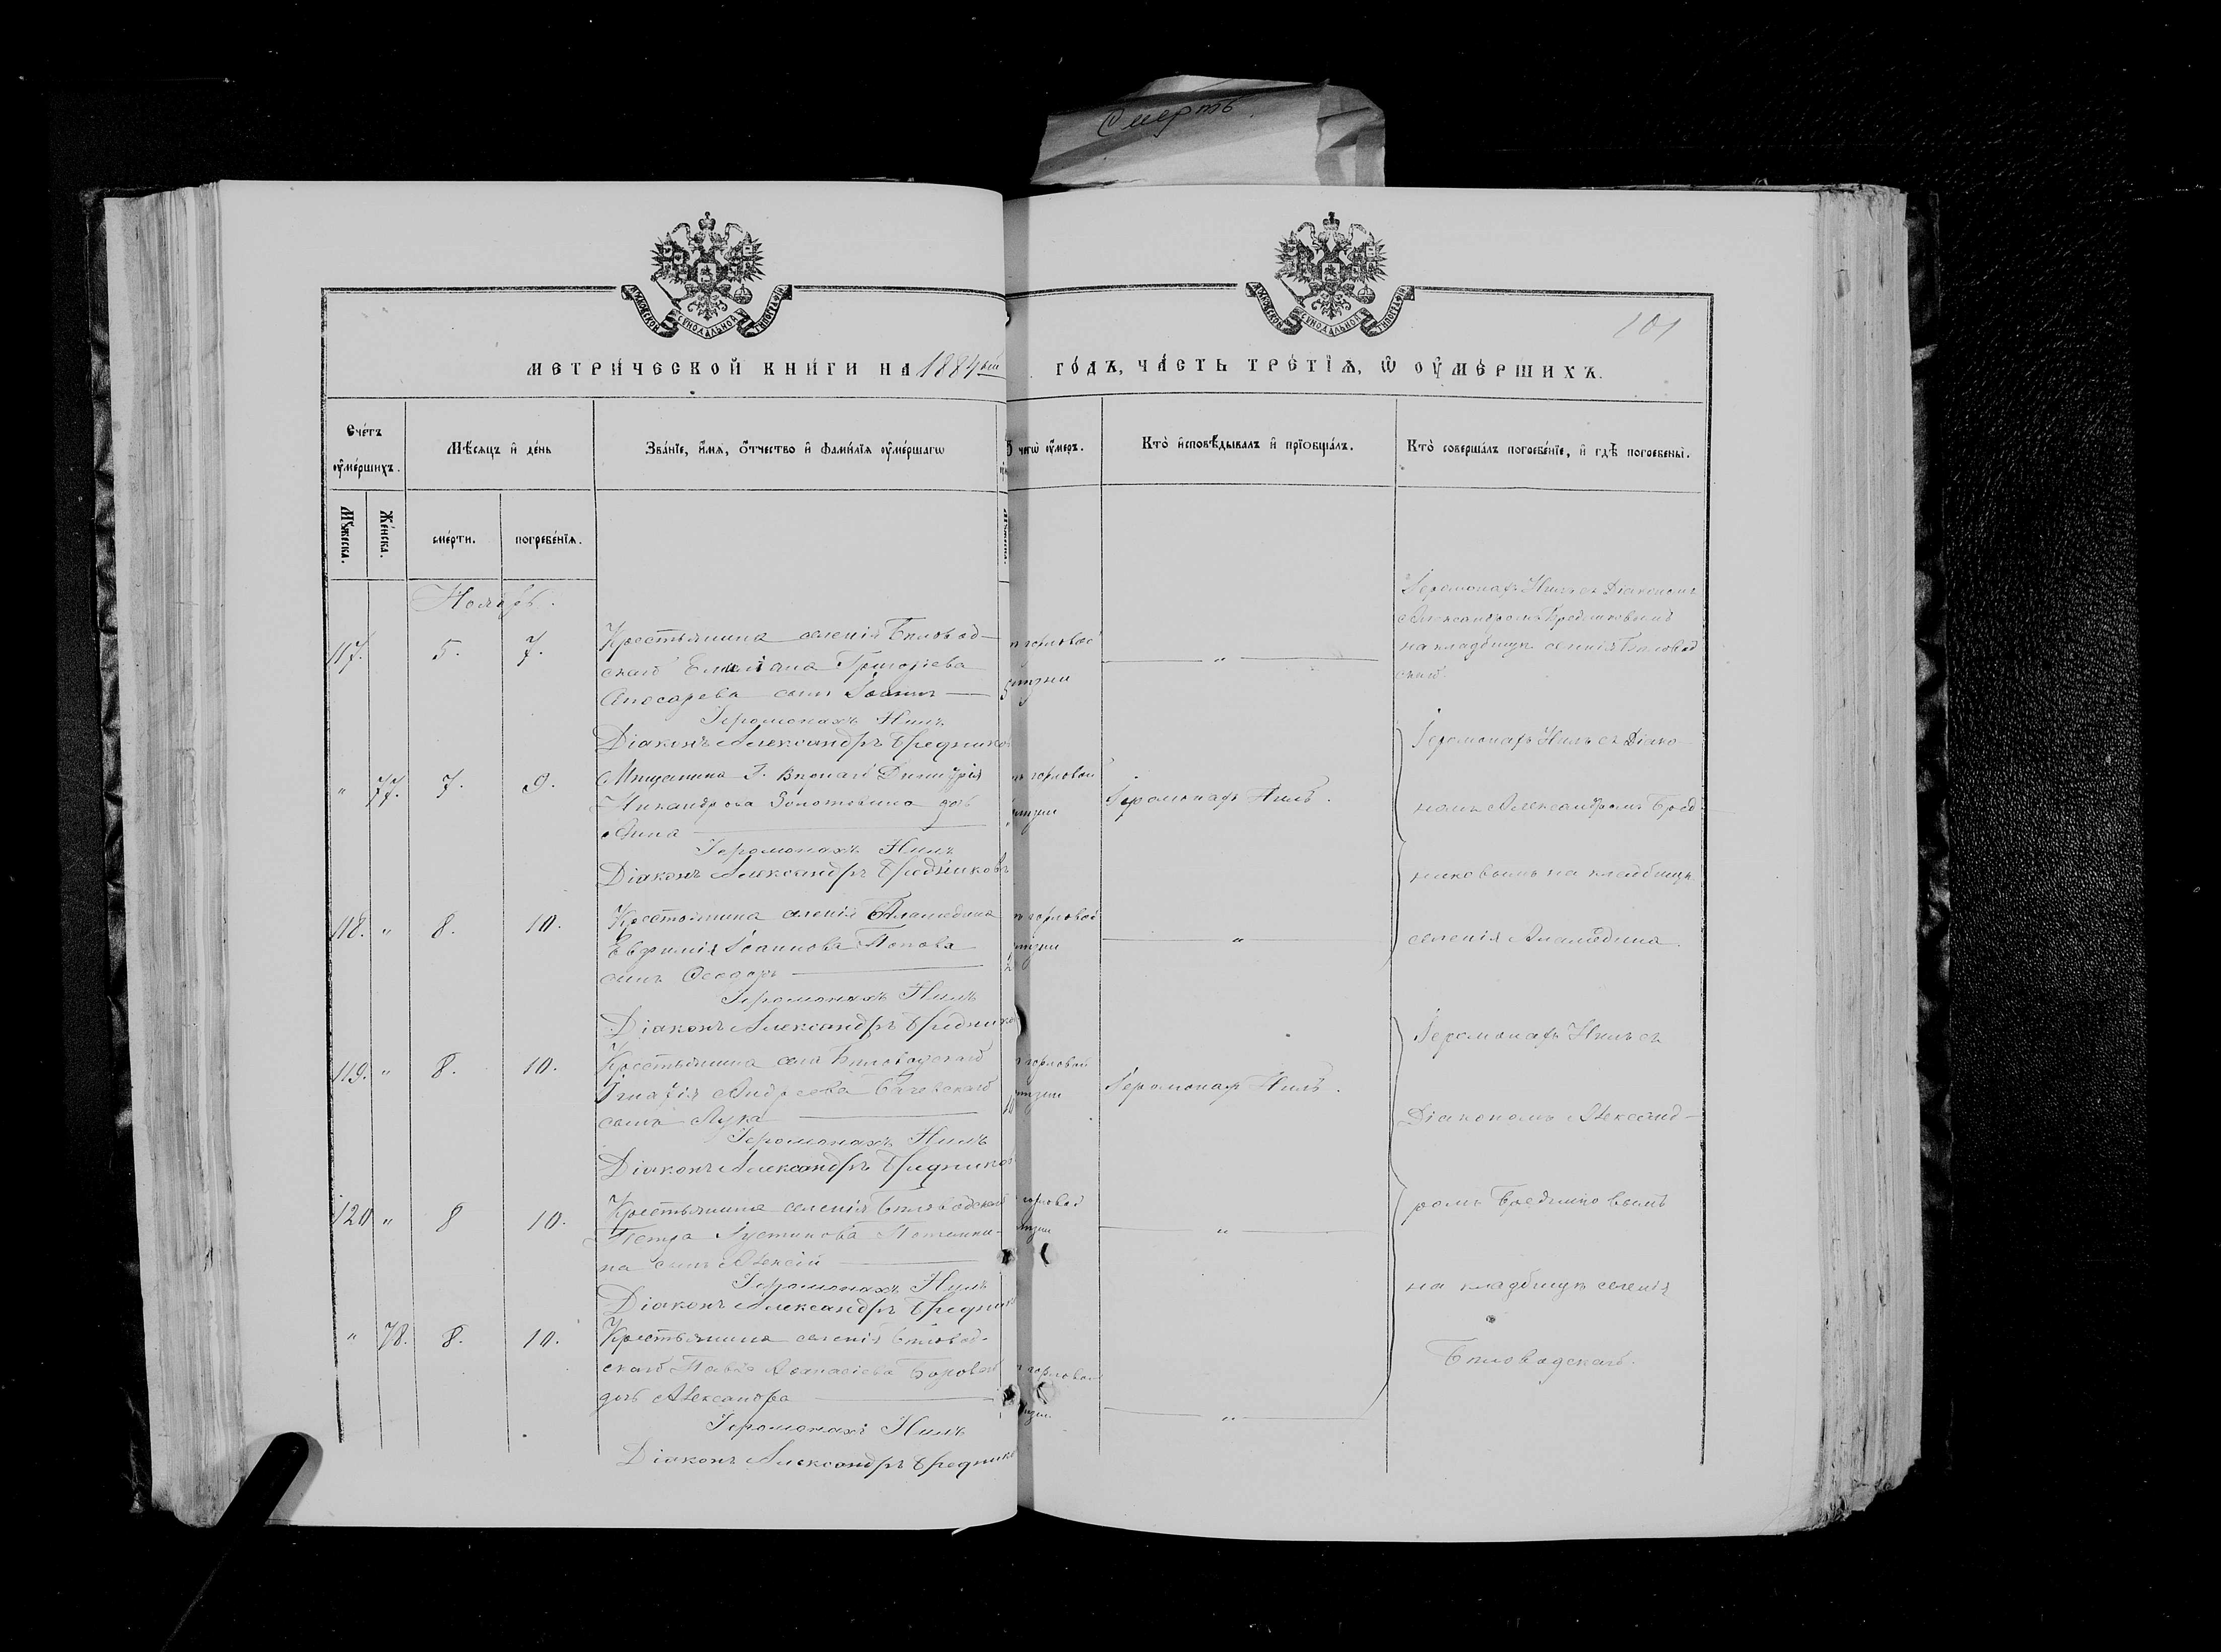 Смерть.
МОСКОВСКОЙ СѴНОДАЛЬНОЙ ТИПОГРАФІИ
МОСКОВСКОЙ СѴНОДАЛЬНОЙ ТИПОГРАФІИ
101
МЕТРИ́ЧЕСКОЙ КНИ́ГИ НА 1884 ый ГО́ДЪ, ЧА́СТЬ ТРЕ́ТІѦ, Ѡ҆ ОУ҆МЕ́РШИХЪ.
Сче́тъ оу҆ме́ршихъ.
Мѣ́сяцъ и҆ де́нь
Зва́нїе, и҆́мѧ, ѻ҆́тчество и҆ фами́лїѧ оу҆ме́ршагѡ
чегѡ̀ оу҆́меръ.
Кто̀ и҆сповѣ́дывалъ и҆ прїѻбща́лъ.
Кто̀ соверша́лъ погребе́нїе, и҆ гдѣ̀ погребены̀.
Мꙋ́жеска.
Же́нска.
сме́рти.
погребе́нїѧ.
Ноябрь.
117. 5. 7.
Крестьянина селенія Бѣловод-
скаго Емиліана Григорьева
сынъ Іоаннъ
Іеромонахъ Нилъ
Діаконъ Александръ Бредников
горловой
Іеромонахъ Нилъ съ Діакономъ
Александромъ Бредниковымъ
на кладбищѣ селенія Бѣловод
скаго.
" 77. 7. 9.
Мѣщанина Г. Вѣрнаго Димитрія
Никандрова дочь
Анна
Іеромонахъ Нилъ
Діаконъ Александръ Бредниковъ
горловой
Іеромонахъ Нилъ.
Іеромонахъ Нилъ съ Діако
номъ Александромъ Бред-
никовымъ на кладбищѣ
селенія Аламедина.
118. " 8. 10.
Крестьянина селенія Аламедина
Евфимія Іоаннова Попова
сынъ Ѳеодоръ
Іеромонахъ Нилъ
Діаконъ Александръ Бреднико
горловой
119. " 8. 10.
Крестьянина села Бѣловодскаго
Игнатія Андреева
сынъ Лука
Іеромонахъ Нилъ
Діаконъ Александръ Бредников
горловой
Іеромонахъ Нилъ.
Іеромонахъ Нилъ съ
Діакономъ Александ-
ромъ Бредниковымъ
на кладбищѣ селенія
Бѣловодскаго.
120 " 8 10.
Крестьянина селенія Бѣловодскаго
Петра Іустинова
на сынъ Алексій
Іеромонахъ Нилъ
Діаконъ Александръ Бредник
горловой
" 78. 8. 10.
Крестьянина селенія Бѣловод-
скаго Павла Аѳанасіева
дочь Александра
Іеромонахъ Нилъ
Діаконъ Александръ Бредник